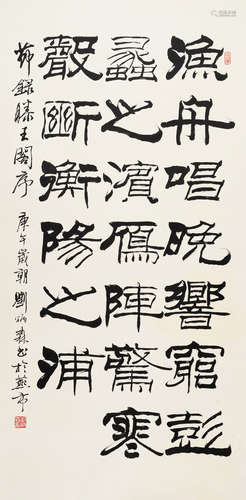 漁舟唱晚響窮彭
蠡之濱鴈陣驚寒
聲斷衡陽之浦
節録滕王閣序 庚午歲朝 劉炳森書於燕市